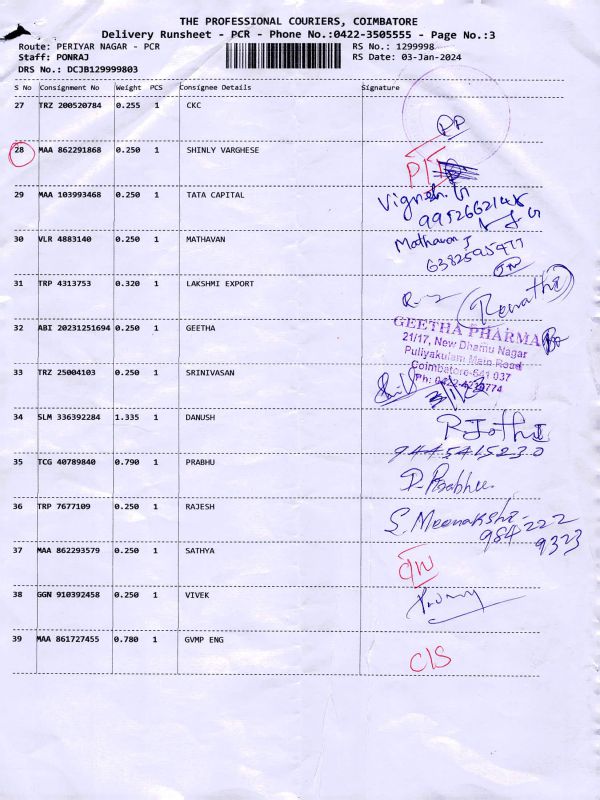 THE PROFESSIONAL COURIERS, COIMBATORE
Delivery Runsheet - PCR - Phone No.:0422-3505555 - Page No.:3
Route: PERIYAR NAGAR - PCR RS No.: 1299998
Staff: PONRAJ RS Date: 03-Jan-2024
DRS No.: DCJB129999803
S No Consignment No Weight PCS Consignee Details Signature
27 TRZ 200520784 0.255 1 CKC
28 MAA 862291868 0.250 1 SHINLY VARGHESE
29 MAA 103993468 0.250 1 TATA CAPITAL
Vignesh. G
30 VLR 4883140 0.250 1 MATHAVAN Mathavan J
6382595477
31 TRP 4313753 0.320 1 LAKSHMI EXPORT
(Revathi)
GEETHA PHARMA
32 ABI 20231251694 0.250 1 GEETHA 21/17, New Dhamu Nagar
Puliyakulam Main Road
33 TRZ 25004103 0.250 1 SRINIVASAN Coimbatore-641 037
34 SLM 336392284 1.335 1 DANUSH R Jothi
9445415230
35 TCG 40789840 0.790 1 PRABHU D. Prabhu.
36 TRP 7677109 0.250 1 RAJESH S. Meenakshi
984 222
9323
37 MAA 862293579 0.250 1 SATHYA
38 GGN 910392458 0.250 1 VIVEK
39 MAA 861727455 0.780 1 GVMP ENG C/S